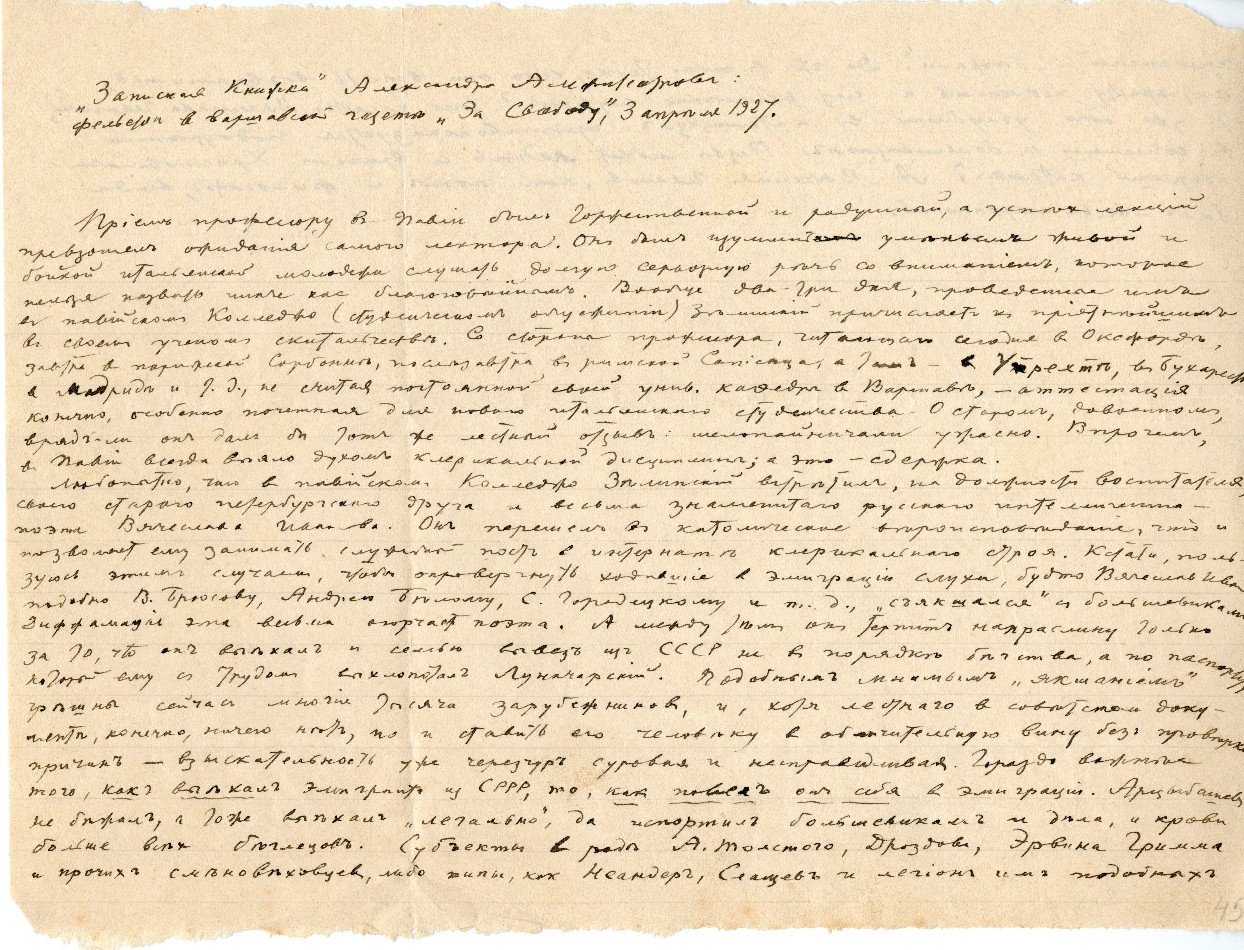 „Записная Книжка" Александра Амфитеатрова:
фельетон в варшавской газете „За Свободу", 3 апреля 1927.
Пріемъ профессору въ Павіи былъ торжественный и радушный, а успѣх лекцій
превзошелъ ожиданія самого лектора. Онъ былъ изумленъ умѣньемъ живой и
бойкой итальянской молодежи слушать долгую серьозную рѣчь со вниманіемъ, которое
нельзя назвать иначе как благоговѣйнымъ. Вообще два-три дня, проведенные имъ
въ павійскомъ Колледжо (студенческомъ общежитіи) Зѣлинскій причисляетъ къ пріятнѣйшимъ
въ своемъ ученомъ скитальчествѣ. Со стороны профессора, читающаго сегодня в Оксфордѣ,
завтра в парижской Сорбоннѣ, послѣзавтра въ римской Сапіенца, а тамъ – в Утрехтѣ, въ Бухарестѣ,
в Мадридѣ и т. д., не считая постоянной своей унив. кафедры в Варшавѣ, – аттестація
конечно, особенно почетная для новаго итальянскаго студенчества. О старомъ, довоенномъ,
врядъ-ли онъ далъ бы тотъ же лестный отзывъ: шелопайничали ужасно. Впрочемъ,
въ Павіи всегда вѣяло духомъ клерикальной дисциплины; а это – сдержка.
Любопытно, что в павійскомъ Колледжо Зѣлинскій встрѣтилъ, на должности воспитателя,
своего стараго петербургскаго друга и весьма знаменитаго русскаго интеллигента –
поэта Вячеслава Иванова. Онъ перешелъ въ католическое вѣроисповѣданіе, что и
позволяетъ ему занимать служебный постъ в интернатѣ клерикальнаго строя. Кстати, поль-
зуюсь этимъ случаемъ, чтобы опровергнуть ходившіе в эмиграціи слухи, будто Вячеславъ Иванов
подобно В. Брюсову, Андрею Бѣлому, С. Городецкому и т. д., „съякшался" съ большевиками
Диффамація эта весьма огорчаетъ поэта. А между тѣмъ онъ терпитъ напраслину только
за то, что онъ выѣхалъ и семью вывезъ изъ СССР не въ порядкѣ бѣгства, а по паспорту,
который ему съ трудомъ выхлопоталъ Луначарскій. Подобнымъ мнимымъ „якшаніемъ"
грѣшны сейчасъ многіе тысячи зарубежниковъ, и, хотя лестнаго в совѣтском доку-
ментѣ, конечно, ничего нѣтъ, но и ставить его человѣку в обличительную вину безъ провѣрки
причинъ – взыскательность уже черезчуръ суровая и несправедливая. Гораздо важнѣе
того, какъ выѣхалъ эмигрантъ из СССР, то, какъ повелъ онъ себя в эмиграціи. Арцыбашевъ
не бѣжалъ, а тоже выѣхалъ „легально", да испортилъ большевикамъ и дѣла, и крови
больше всѣхъ бѣглецовъ. Субъекты в родѣ А. Толстого, Дроздова, Эрвина Гримма
и прочихъ смѣновѣховцев, либо типы, как Неандеръ, Слащевъ и легіонъ имъ подобныхъ
45